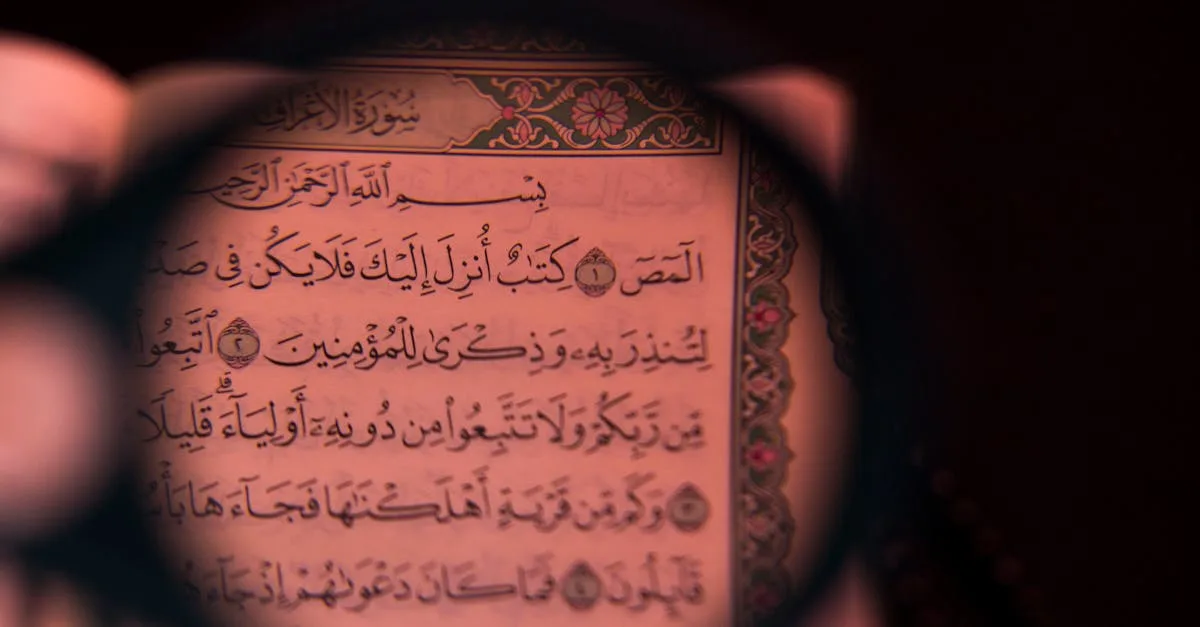 سُورَةُ الْأَعْرَافِ
بِسْمِ ٱللَّهِ ٱلرَّحْمَٰنِ ٱلرَّحِيمِ
الٓمٓصٓ ١ كِتَٰبٌ أُنزِلَ إِلَيْكَ فَلَا يَكُن فِى
لِتُنذِرَ بِهِۦ وَذِكْرَىٰ لِلْمُؤْمِنِينَ ٢ ٱتَّبِعُوا۟
مِّن رَّبِّكُمْ وَلَا تَتَّبِعُوا۟ مِن دُونِهِۦٓ أَوْلِيَآءَ ۗ قَلِيلًا
٣ وَكَم مِّن قَرْيَةٍ أَهْلَكْنَٰهَا فَجَآءَهَا
قَآئِلُونَ ٤ فَمَا كَانَ دَعْوَىٰهُمْ إِذْ